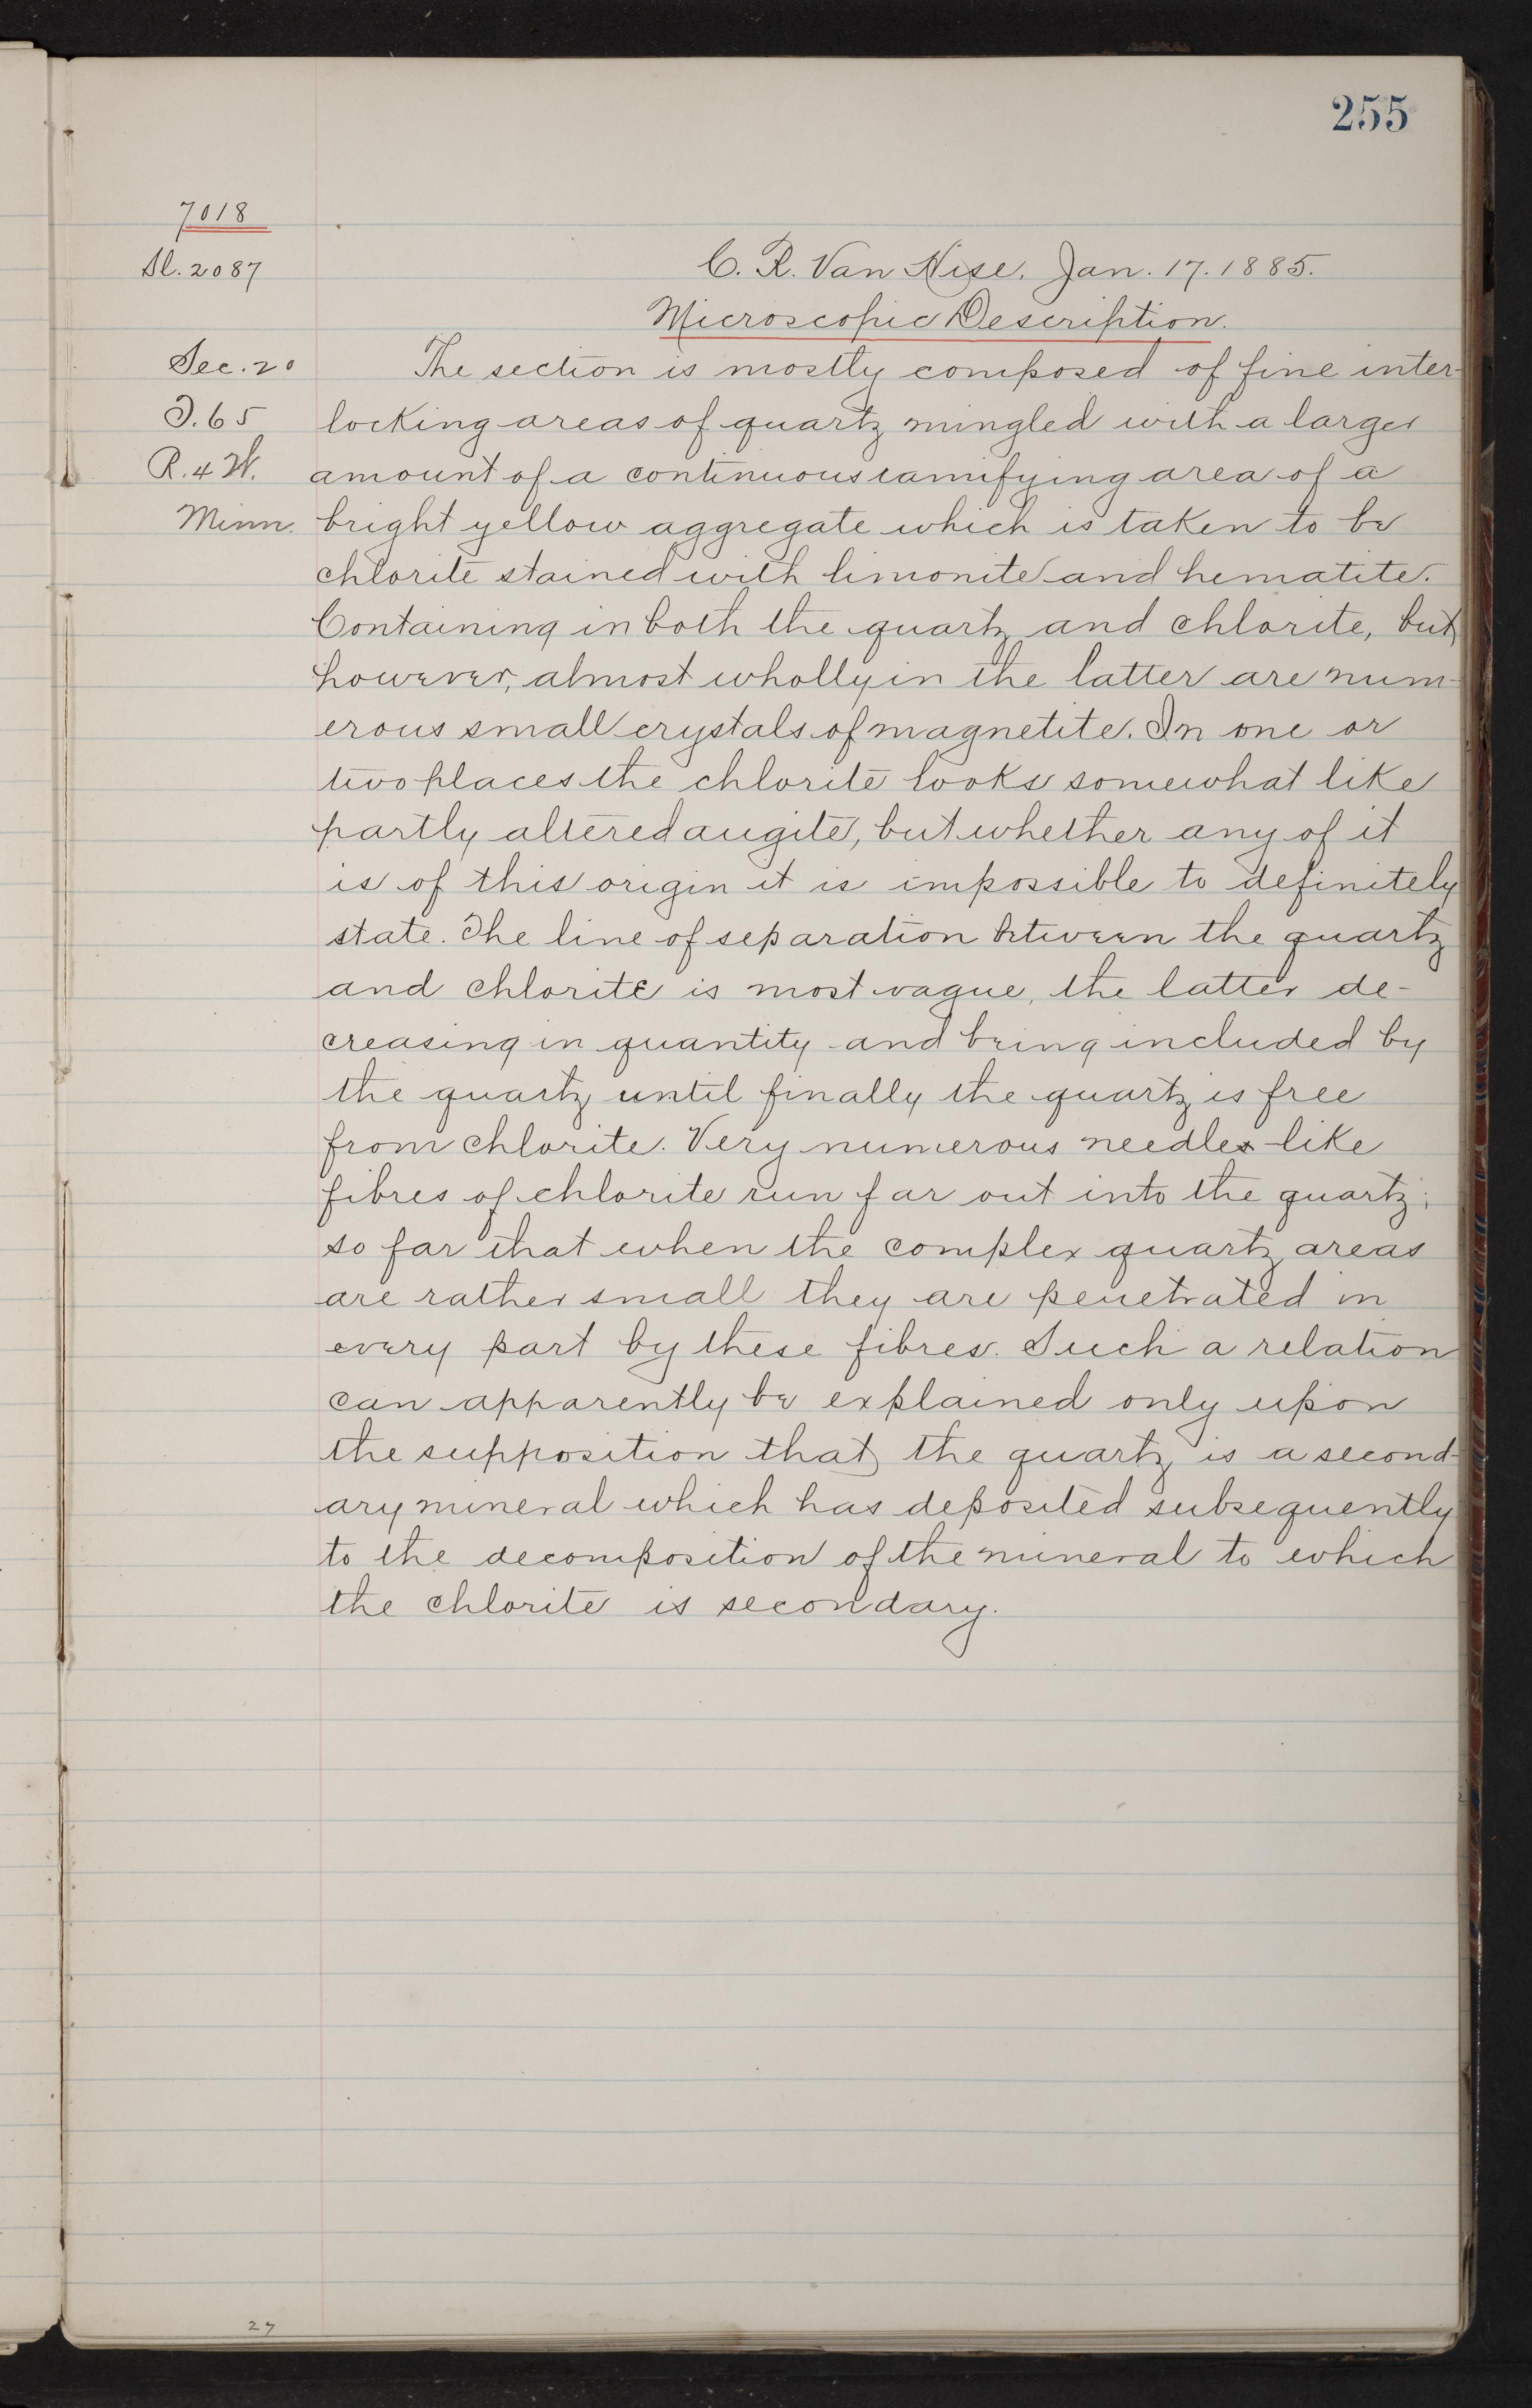 255
7018
Sl. 2087
C. R. Van Hise. Jan. 17. 1885.
Microscopic Description.
Sec. 20
T. 65
R. 4 W.
Minn.
The section is mostly composed of fine inter-
locking areas of quartz mingled with a larger
amount of a continuous ramifying area of a
bright yellow aggregate which is taken to be
chlorite stained with limonite and hematite.
Containing in both the quartz and chlorite, but
however, almost wholly in the latter are num-
erous small crystals of magnetite. In one or
two places the chlorite looks somewhat like
partly altered augite, but whether any of it
is of this origin it is impossible to definitely
state. The line of separation between the quartz
and chlorite is most vague, the latter de-
creasing in quantity and being included by
the quartz until finally the quartz is free
from chlorite. Very numerous needle-like
fibres of chlorite run far out into the quartz;
so far that when the complex quartz areas
are rather small they are penetrated in
every part by these fibres. Such a relation
can apparently be explained only upon
the supposition that the quartz is a second-
ary mineral which has deposited subsequently
to the decomposition of the mineral to which
the chlorite is secondary.
27